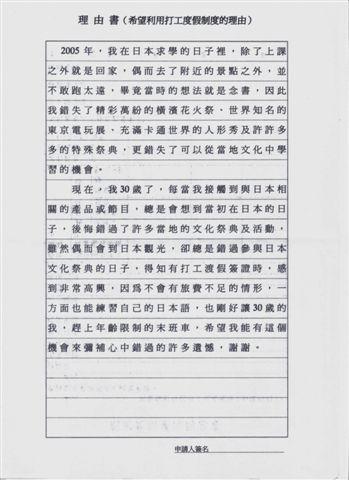 理由書（希望利用打工度假制度的理由）
2005年，我在日本求學的日子裡，除了上課
之外就是回家，偶而去附近的景點之外，並
不敢跑太遠，畢竟當時的想法就是念書，因此
我錯失了精彩萬紛的橫濱花火祭、世界知名的
東京電玩展、充滿卡通世界的人形秀及許許多
多的特殊祭典，更錯失了可以從當地文化中學
習的機會。
現在，我30歲了，每當我接觸到與日本相
關的產品或節目，總是會想到當初在日本的日
子，後悔錯過了許多當地的文化祭典及活動，
雖然偶而會到日本觀光，卻總是錯過參與日本
文化祭典的日子，得知有打工渡假簽證時，感
到非常高興，因為不會有旅費不足的情形，一
方面也能練習自己的日本語，也剛好讓30歲的
我，趕上年齡限制的末班車，希望我能有這個
機會來彌補心中錯過的許多遺憾，謝謝。
申請人簽名